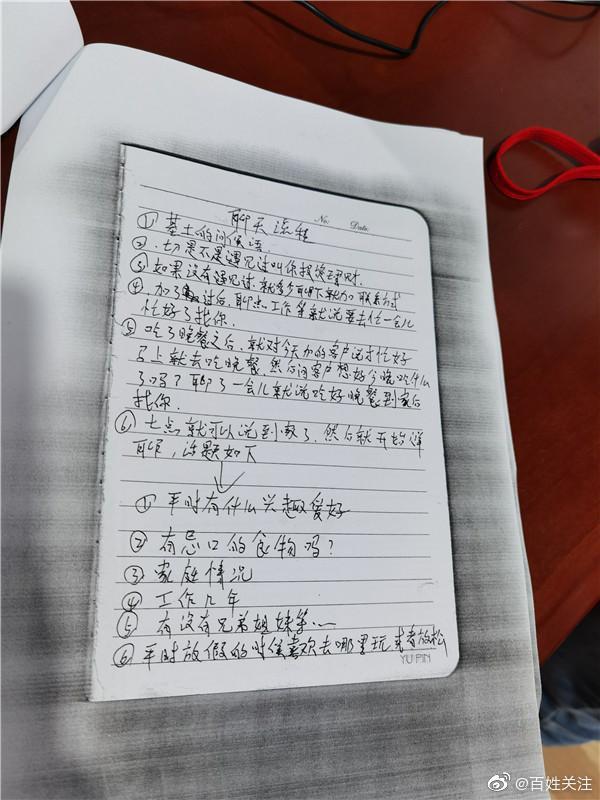 聊天流程
No:
Date:
① 基本的问候语
② 切果不是遇见过叫你投资理财.
③ 如果没有遇见过 就多聊下就加联系方式
④ 加了过后 聊点工作等就说要去忙一会儿
忙好了找你.
⑤ 吃了晚餐之后, 就对今天加的客户说才忙好
马上就去吃晚餐 然后问客户想好今晚吃什么
了吗? 聊了一会儿就说吃好晚餐到家后
找你.
⑥ 七点就可以说到家了. 然后就开始详
聊, 话题如下
① 平时有什么兴趣爱好
② 有忌口的食物吗?
③ 家庭情况
④ 工作几年
⑤ 有没有兄弟姐妹等…
⑥ 平时放假的时候喜欢去哪里玩或者放松
YU PIN
@百姓关注